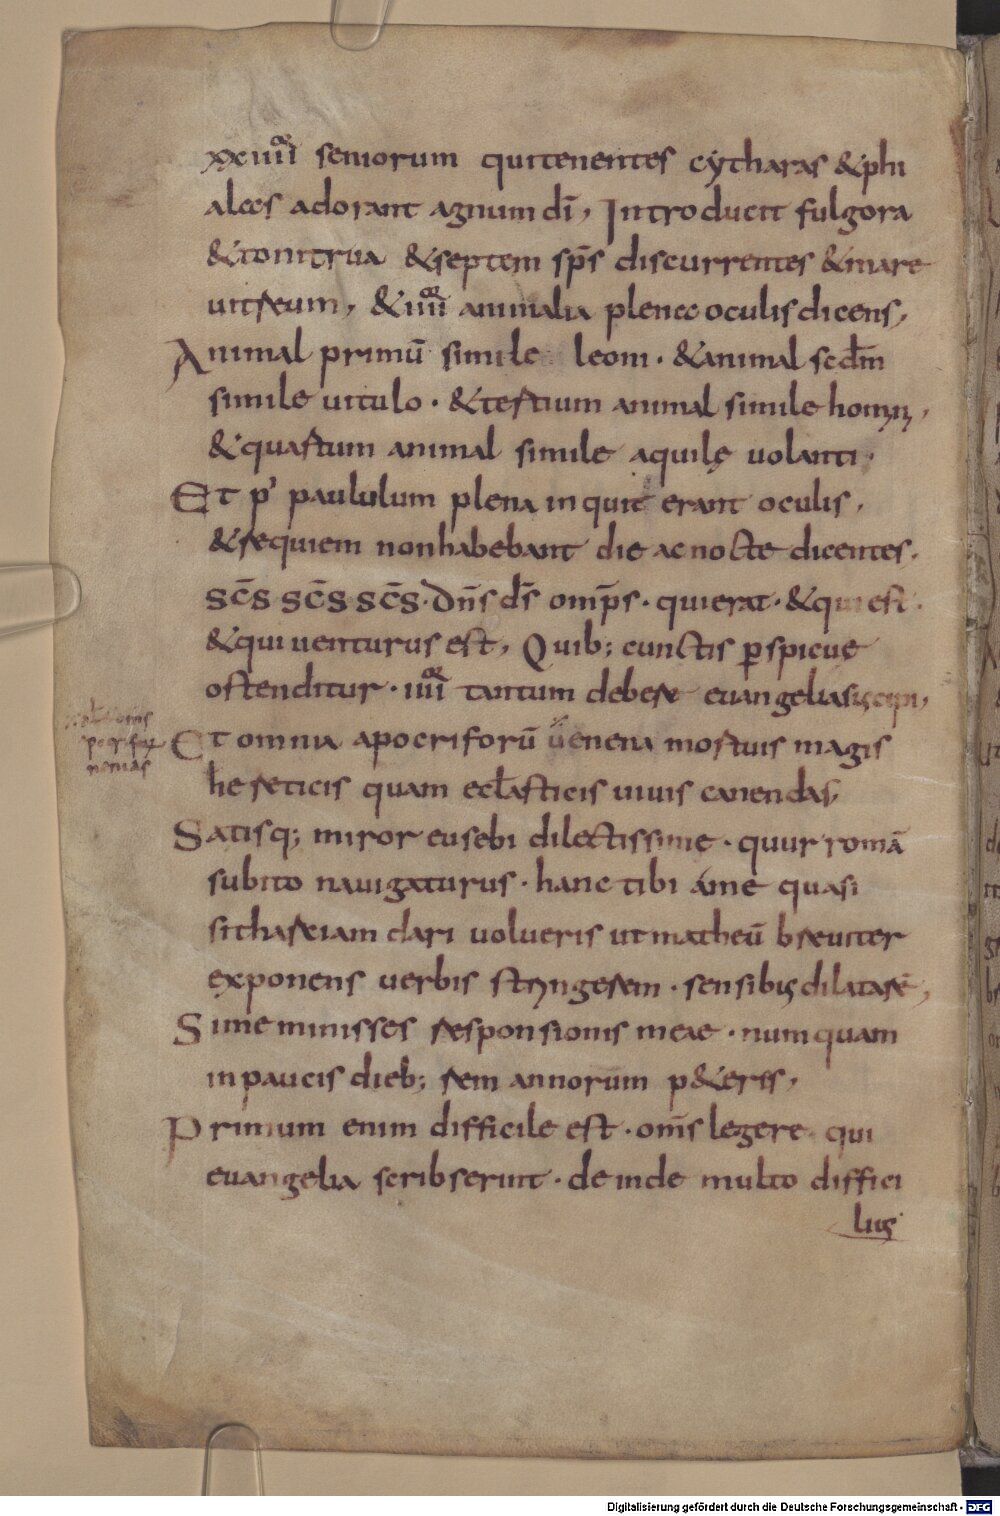 xxiiiior seniorum quitenentes cytharas &phi
alaas adorant agnum dī, Introducit fulgora
&tonitrua &septem sps̄ discurrentes &mare
uitreum, &iiiior animalia plenaa oculis dicens,
Animal primū simile leoni · &animal secdm̄
simile uitulo · &tertium animal simile homini,
&quartum animal simile aquilę uolanti,
Et p' paululum plena inquit erant oculis,
&requiem nonhabebant die acnocte dicentes,
SC̄S SC̄S SC̄S · Dn̄s ds̄ omp̄s · quierat · &qui est ·
&quiuenturus est, Quib; cunctis ꝑspicue
ostenditur · iiiior tantum debere euangelia suscipi,
Et omnia apocriforū uenena mortuis magis
hereticis quam ecl̄asticis uiuis canendas,
Satisq; miror eusebi dilectissime · quur romā
subito nauigaturus · hanc tibi ame quasi
sitharciam dari uolueris ut matheū breuiter
exponens uerbis stringerem · sensibus dilatarē,
Simeminisses responsionis meae · numquam
inpaucis dieb; rem annorum p&eris,
Primum enim difficile est · oms̄ legere qui
euangelia scribserunt · deinde multo diffici
lius
nenias
Digitalisierung gefördert durch die Deutsche Forschungsgemeinschaft - DFG